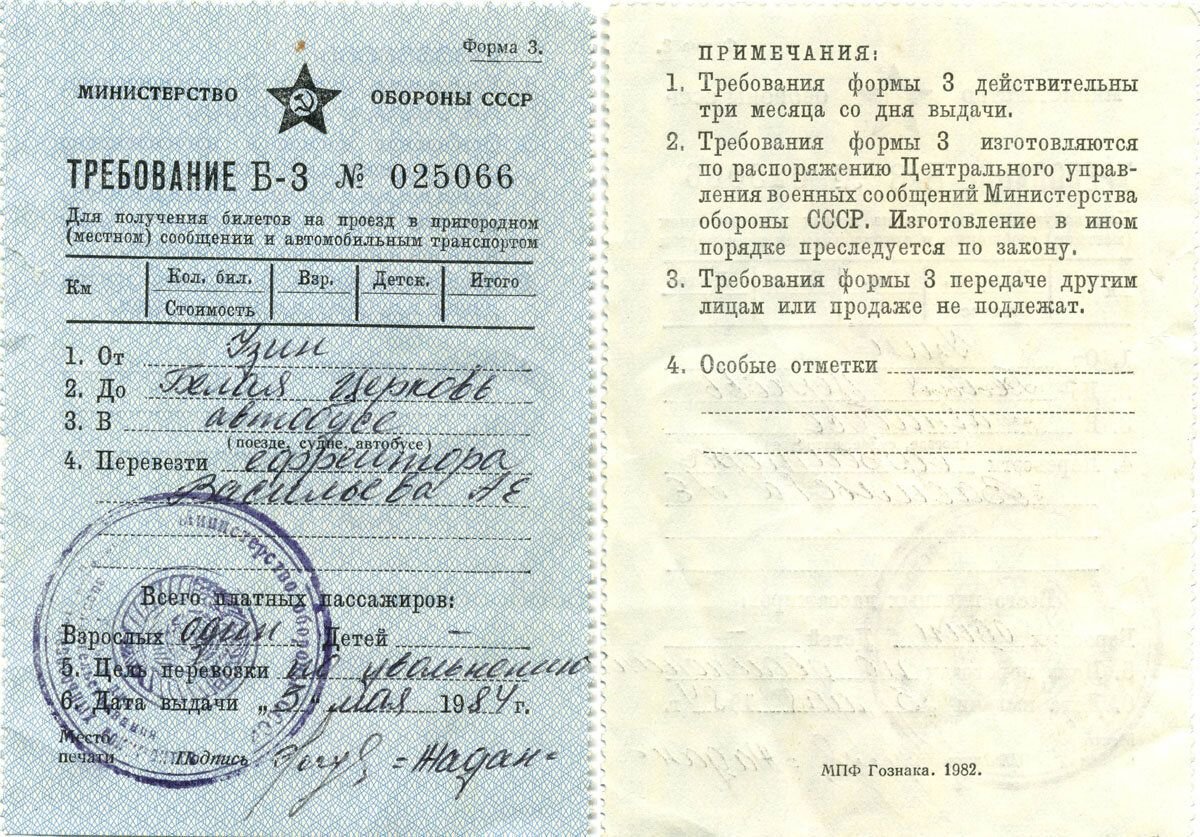 Форма 3.
МИНИСТЕРСТВО ОБОРОНЫ СССР
ТРЕБОВАНИЕ Б-3 № 025066
Для получения билетов на проезд в пригородном
(местном) сообщении и автомобильным транспортом
Км Кол. бил. Взр. Детск. Итого
Стоимость
1. От Узин
2. До Белая Церковь
3. В автобусе
(поезде, судне, автобусе)
4. Перевезти ефрейтора
Васильева АЕ
Министерство обороны
Всего платных пассажиров:
Взрослых один Детей —
5. Цель перевозки по увольнению
6. Дата выдачи „5" мая 1984 г.
Место
печати Подпись =Жадан=
ПРИМЕЧАНИЯ:
1. Требования формы 3 действительны
три месяца со дня выдачи.
2. Требования формы 3 изготовляются
по распоряжению Центрального управ-
ления военных сообщений Министерства
обороны СССР. Изготовление в ином
порядке преследуется по закону.
3. Требования формы 3 передаче другим
лицам или продаже не подлежат.
4. Особые отметки
МПФ Гознака. 1982.